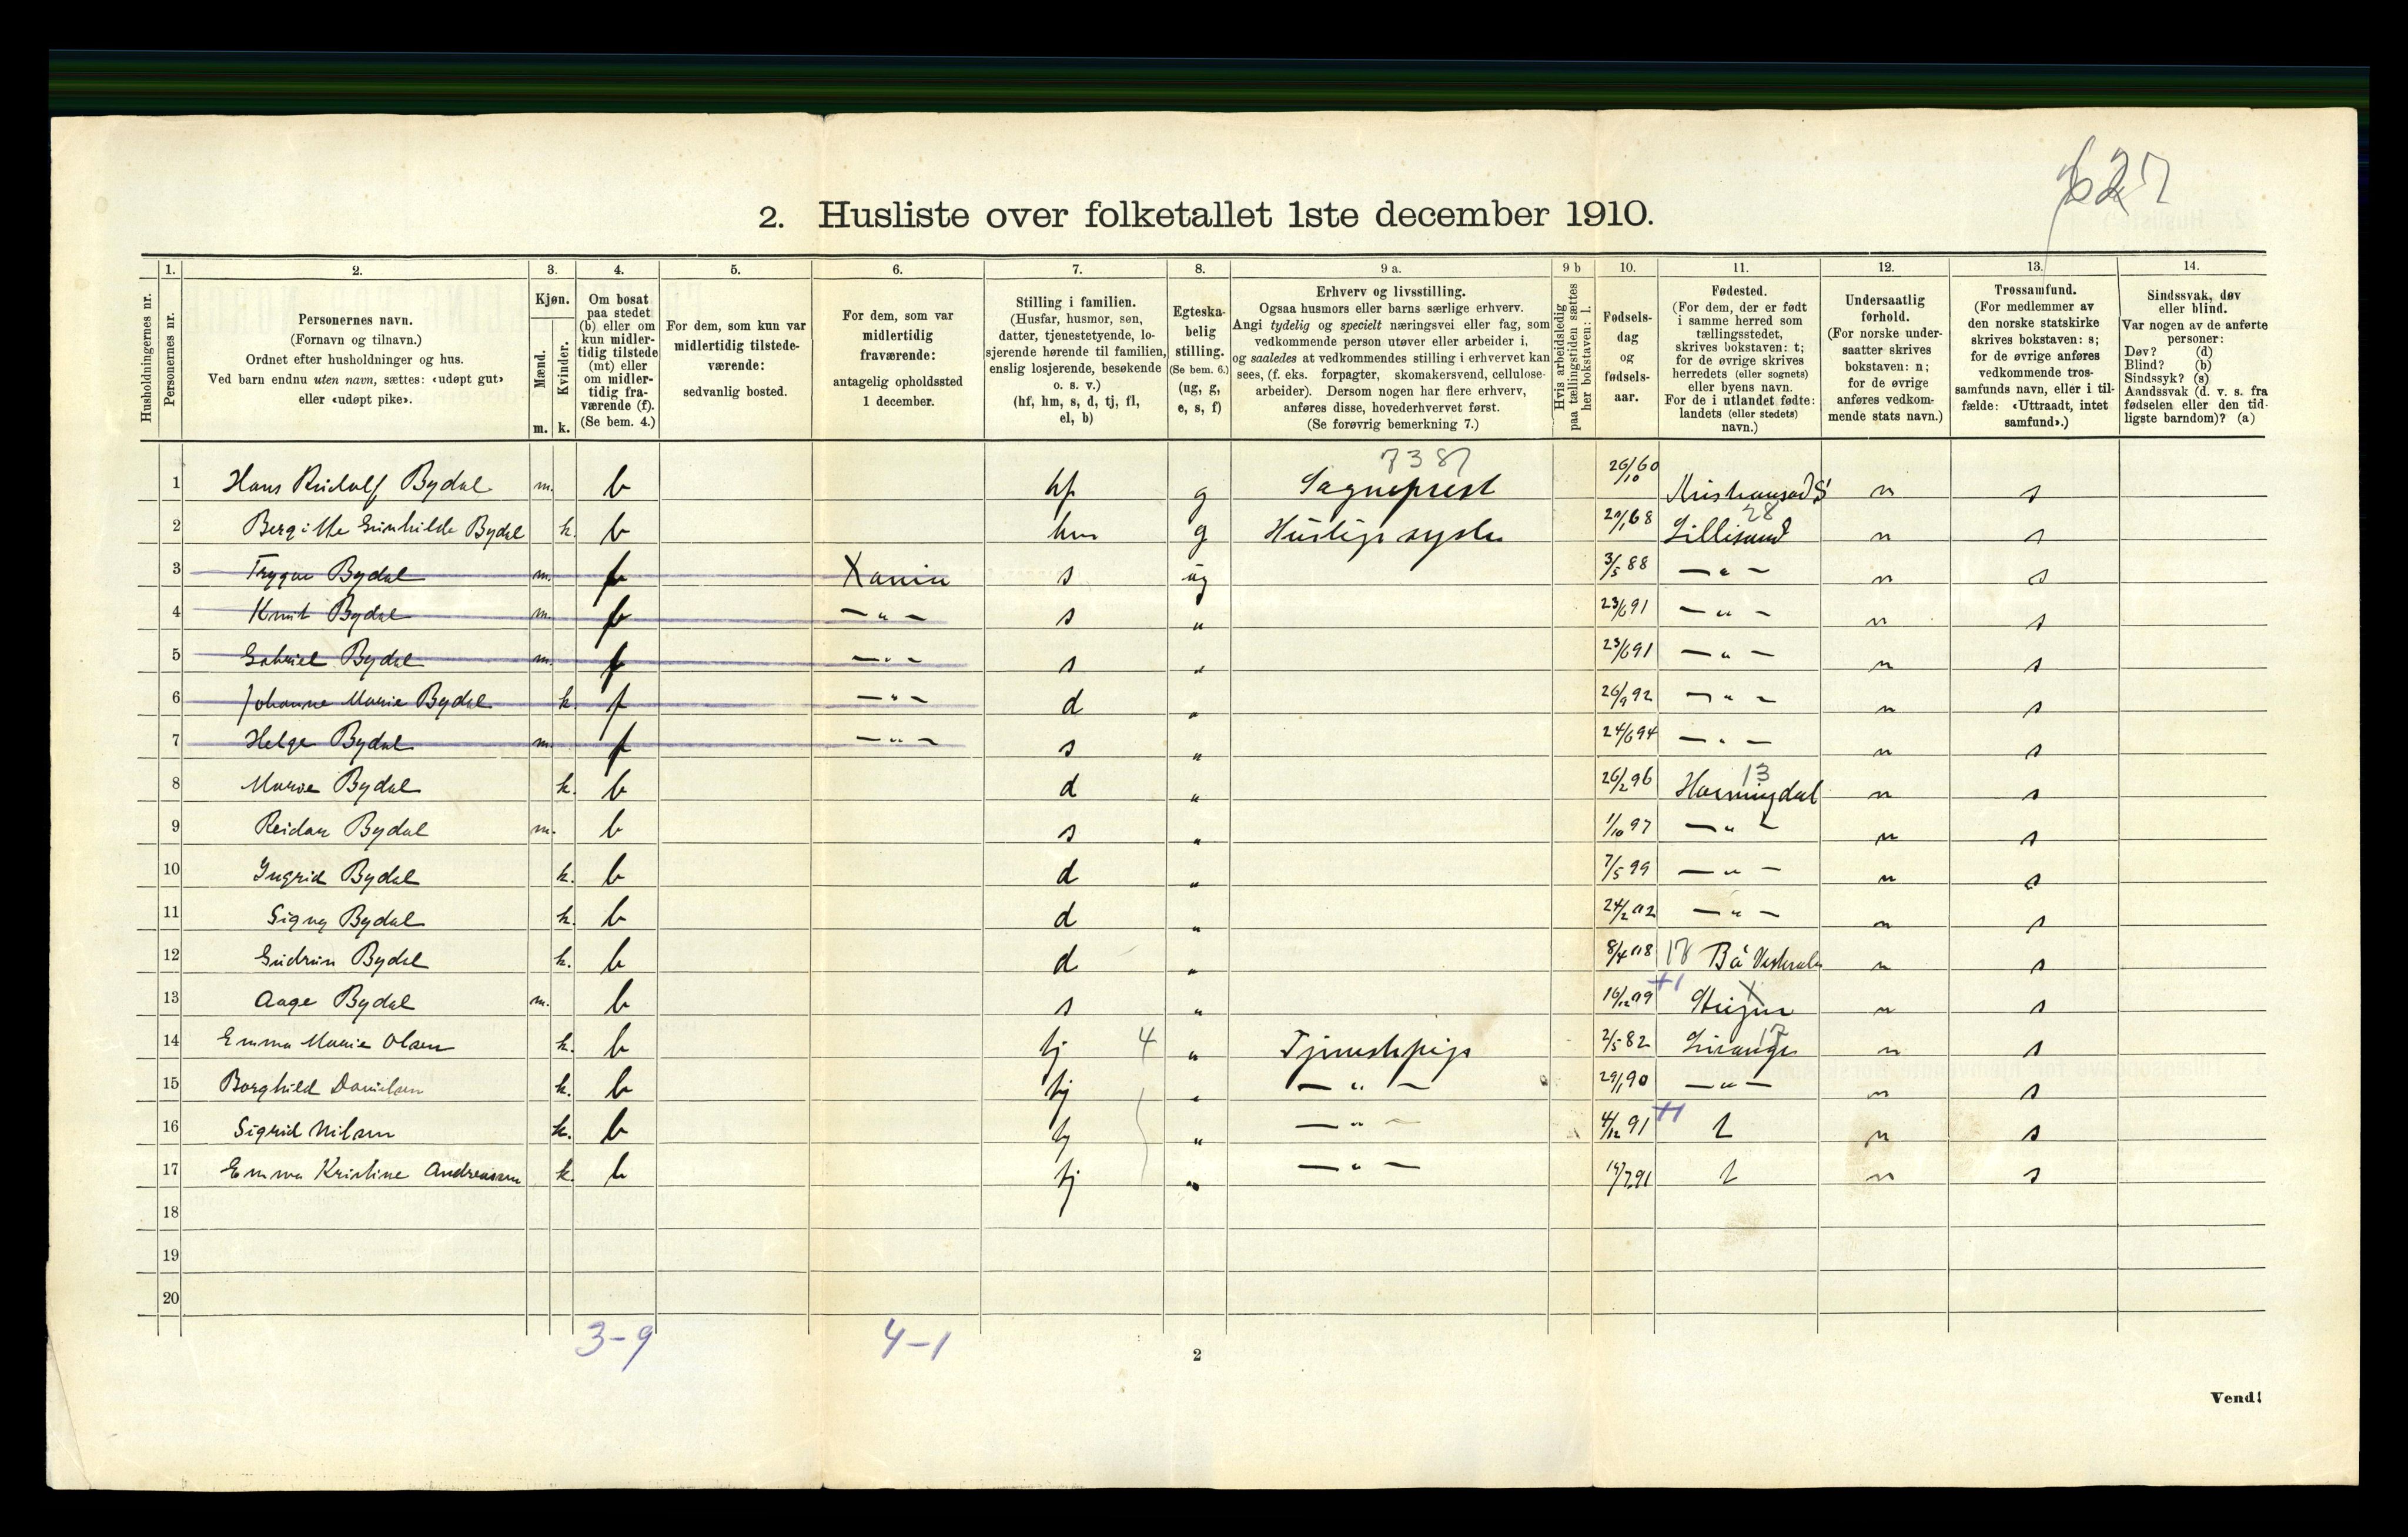 627
2. Husliste over folketallet 1ste december 1910.
Husholdningernes nr.
1. Personernes nr.
2. Personernes navn. (Fornavn og tilnavn.) Ordnet efter husholdninger og hus. Ved barn endnu uten navn, sættes: «udøpt gut» eller «udøpt pike».
3. Kjøn. Mænd. Kvinder. m. k.
4. Om bosat paa stedet (b) eller om kun midler-tidig tilstede (mt) eller om midler-tidig fra-værende (f). (Se bem. 4.)
5. For dem, som kun var midlertidig tilstede-værende: sedvanlig bosted.
6. For dem, som var midlertidig fraværende: antagelig opholdssted 1 december.
7. Stilling i familien. (Husfar, husmor, søn, datter, tjenestetyende, lo-sjerende hørende til familien, enslig losjerende, besøkende o. s. v.) (hf, hm, s, d, tj, fl, el, b)
8. Egteska-belig stilling. (Se bem. 6.) (ug, g, e, s, f)
9 a. Erhverv og livsstilling. Ogsaa husmors eller barns særlige erhverv. Angi tydelig og specielt næringsvei eller fag, som vedkommende person utøver eller arbeider i, og saaledes at vedkommendes stilling i erhvervet kan sees, (f. eks. forpagter, skomakersvend, cellulose-arbeider). Dersom nogen har flere erhverv, anføres disse, hovederhvervet først. (Se forøvrig bemerkning 7.)
9 b Hvis arbeidsledig paa tællingstiden sættes her bokstaven: l.
10. Fødsels-dag og fødsels-aar.
11. Fødested. (For dem, der er født i samme herred som tællingsstedet, skrives bokstaven: t; for de øvrige skrives herredets (eller sognets) eller byens navn. For de i utlandet fødte: landets (eller stedets) navn.)
12. Undersaatlig forhold. (For norske under-saatter skrives bokstaven: n; for de øvrige anføres vedkom-mende stats navn.)
13. Trossamfund. (For medlemmer av den norske statskirke skrives bokstaven: s; for de øvrige anføres vedkommende tros-samfunds navn, eller i til-fælde: «Uttraadt, intet samfund».)
14. Sindssvak, døv eller blind. Var nogen av de anførte personer: Døv? (d) Blind? (b) Sindssyk? (s) Aandssvak (d. v. s. fra fødselen eller den tid-ligste barndom)? (a)
7387
1 Hans Rudolf Bydal m. b hf g Sogneprest 26/10 60 Kristiansand S n s
28
2 Bergitte Gunhilde Bydal k. b hm g Huslige sysler 21/1 68 Lillesand n s
3 Trygve Bydal m. f Xania s ug 3/5 88 — " — n s
4 Knut Bydal m. f — " — s " 23/6 91 — " — n s
5 Gabriel Bydal m. f — " — s " 23/6 91 — " — n s
6 Johanne Marie Bydal k. f — " — d " 26/9 92 — " — n s
7 Helge Bydal m. f — " — s " 24/6 94 — " — n s
13
8 Marie Bydal k. b d " 26/2 96 Hornindal n s
9 Reidar Bydal m. b s " 1/10 97 — " — n s
10 Ingrid Bydal k. b d " 7/5 99 — " — n s
11 Signy Bydal k. b d " 24/2 02 — " — n s
12 Gudrun Bydal k. b d " 8/4 08 18 Bö Vesteraalen n s
13 Aage Bydal m. b s " 16/12 09 +1 Steigen X n s
14 Emma Marie Olsen k. b tj 4 " Tjenestepige 2/5 82 Leirange 17 n s
15 Borghild Danielsen k. b tj " — " — 29/1 90 — " — n s
16 Sigrid Nilsen k. b tj " — " — 4/12 91 +1 t n s
17 Emma Kristine Andreassen k. b tj " — " — 14/7 91 t n s
18
19
20
3-9 4-1
2
Vend!